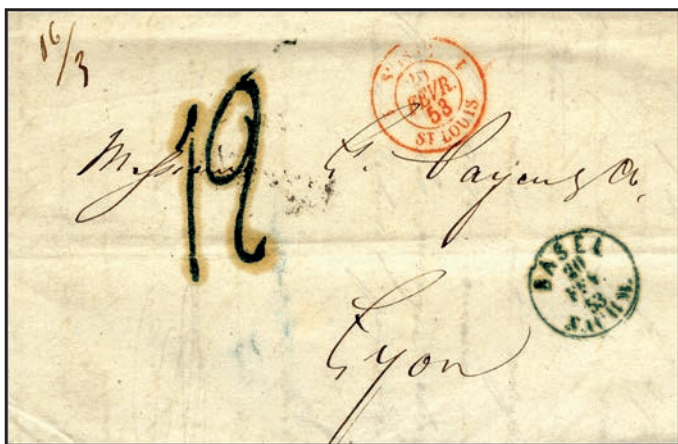 16/3
FEVR.
53
ST LOUIS
12
Messieurs Payen & Co.
BASEL
20
FEV
53
NACHM.
Lyon